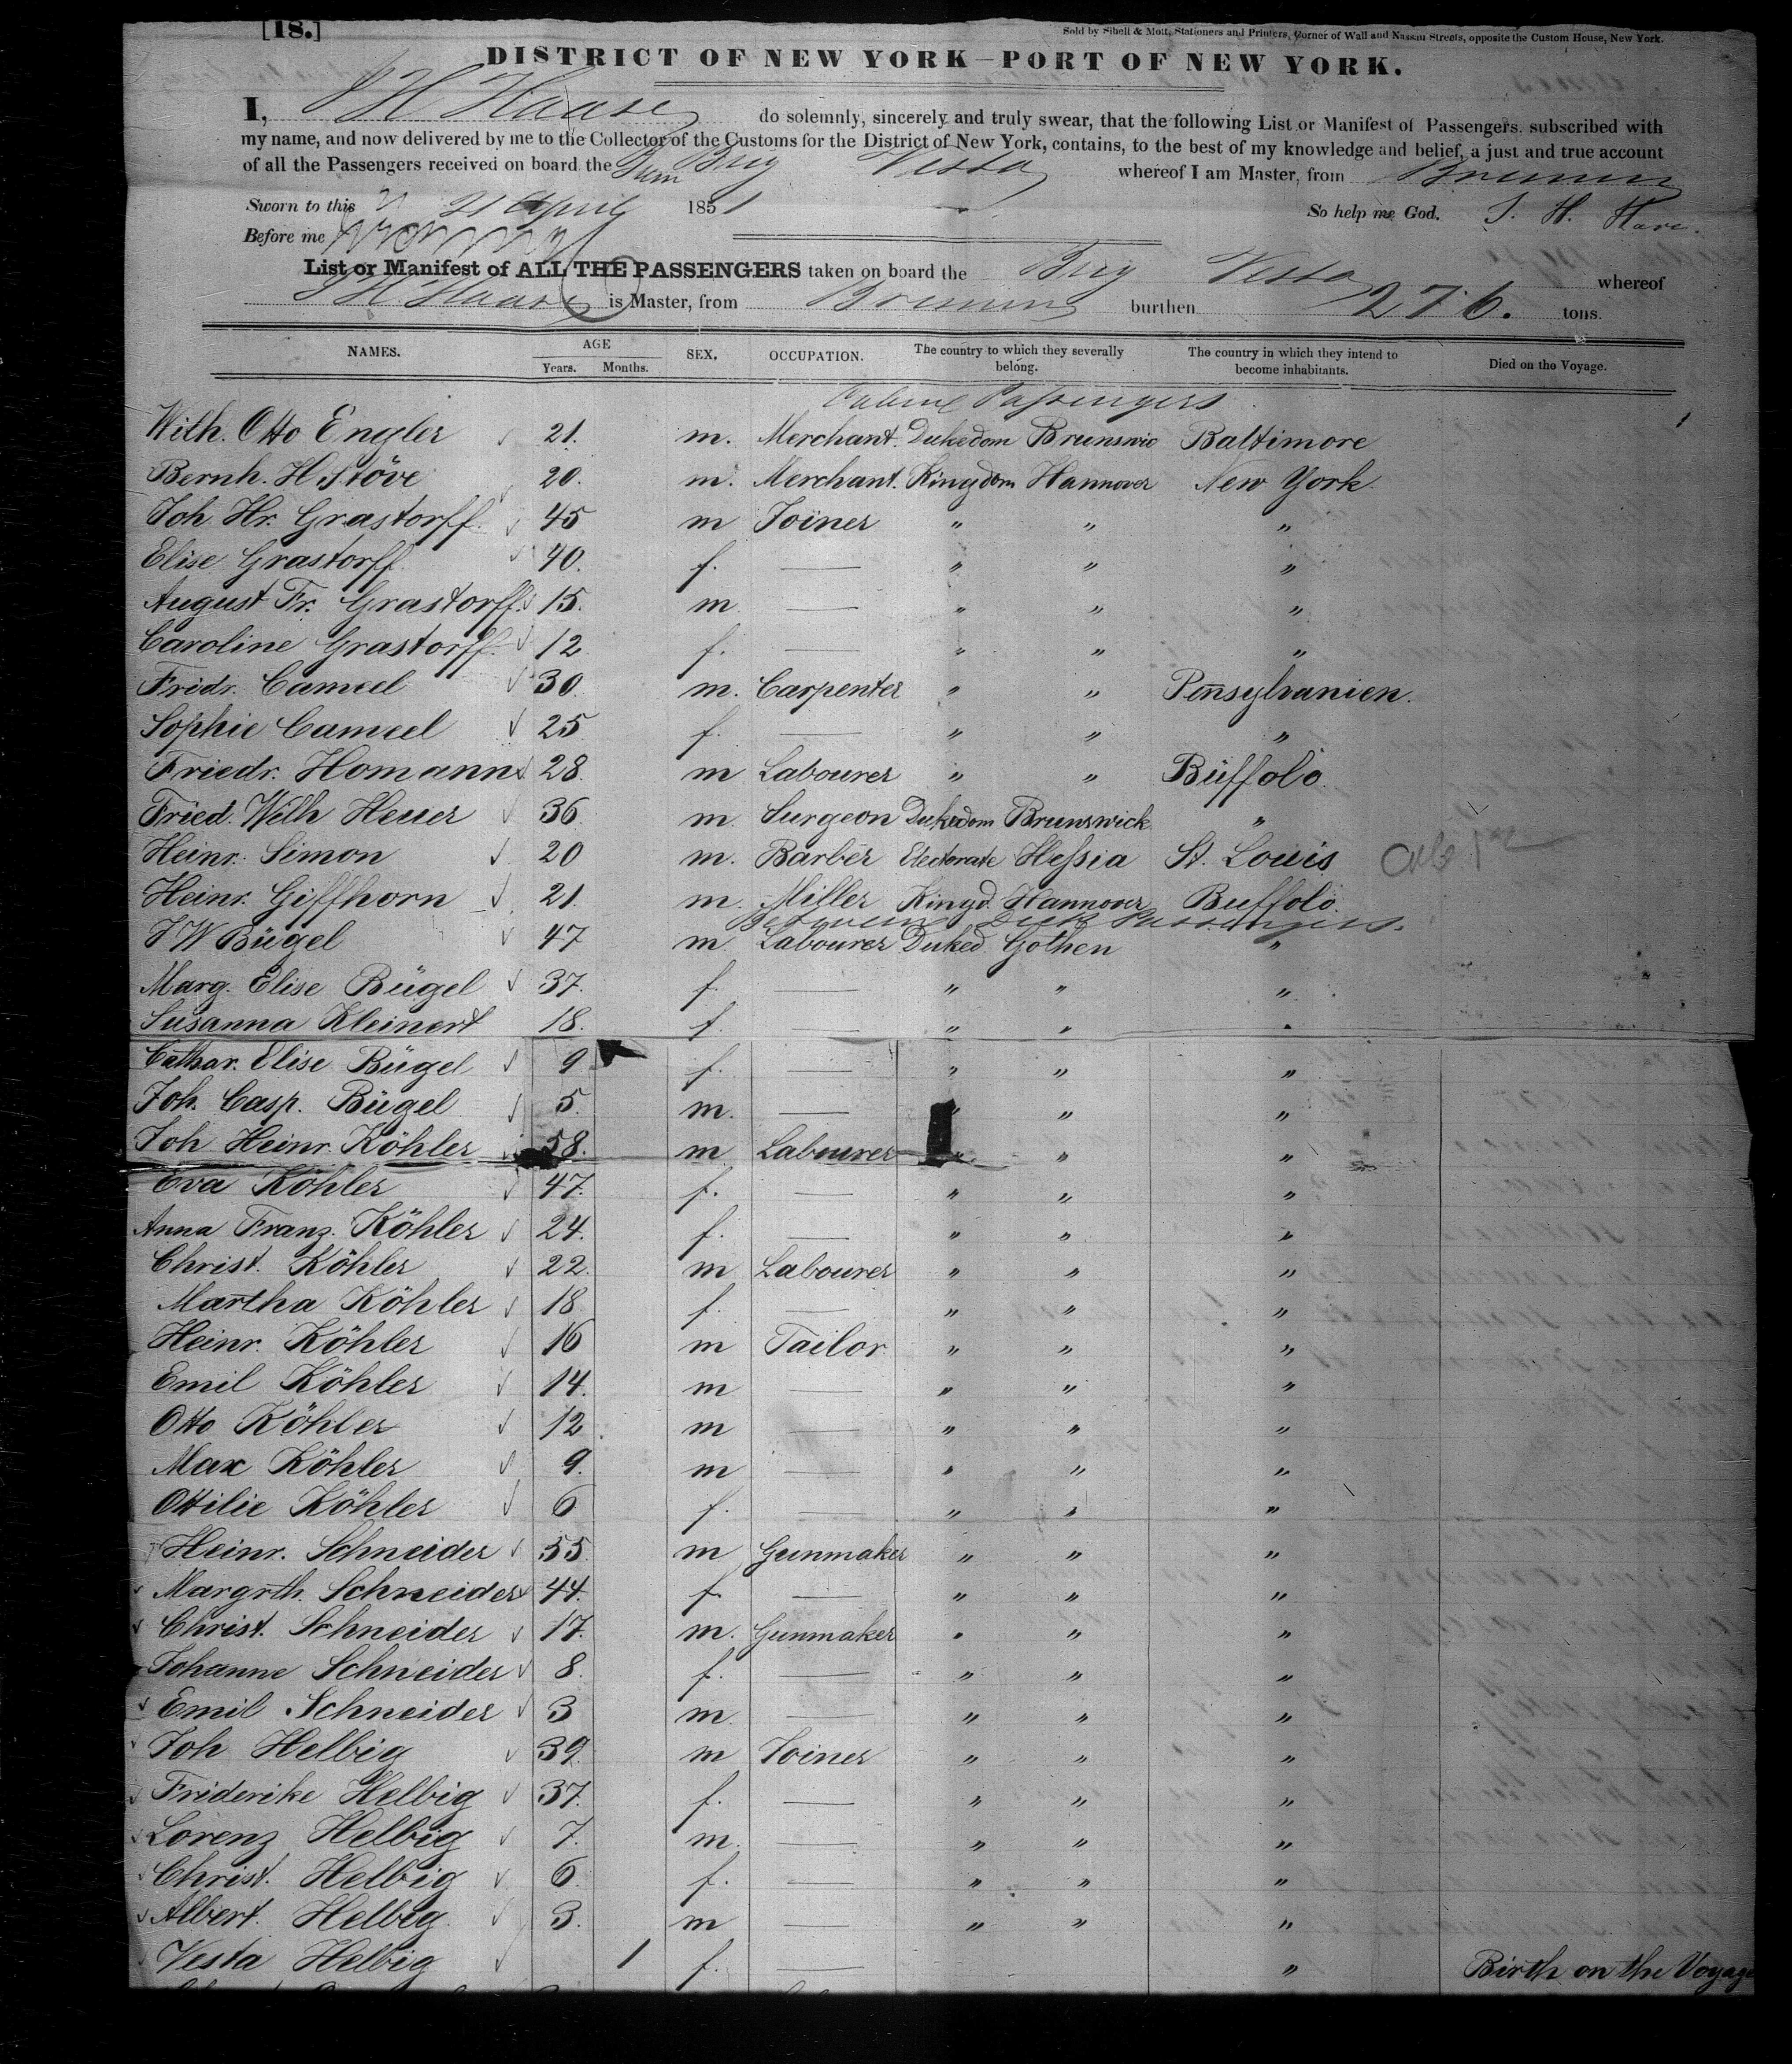 [18.]
Sold by Sibell & Mott, Stationers and Printers, Corner of Wall and Nassau Streets, opposite the Custom House, New York.
DISTRICT OF NEW YORK—PORT OF NEW YORK.
I, J H Haase do solemnly, sincerely and truly swear, that the following List or Manifest of Passengers. subscribed with
my name, and now delivered by me to the Collector of the Customs for the District of New York, contains, to the best of my knowledge and belief, a just and true account
of all the Passengers received on board the Brig Vesta whereof I am Master, from Bremen
Sworn to this 21 April 1851 So help me God. J. H. Haase
Before me
List or Manifest of ALL THE PASSENGERS taken on board the Brig Vesta whereof
J H Haase is Master, from Bremen burthen 276. tons.
NAMES. AGE Years. Months. SEX. OCCUPATION. The country to which they severally belong. The country in which they intend to become inhabitants. Died on the Voyage.
Cabine Passengers
Wilh. Otto Engler 21. m. Merchant. Dukedom Brunswic Baltimore
Bernh. H. Stöve 20. m. Merchant. Kingdom Hannover New York.
Joh Hr. Grastorff. 45 m Joiner " " "
Elise Grastorff. 40. f. — " " "
August Fr. Grastorff. 15. m — " " "
Caroline Grastorff. 12 f. — " " "
Fridr. Cameel 30. m. Carpenter " " Pennsylvanien.
Sophie Cameel 25 f. — " " "
Friedr. Homann 28. m Labourer " " Büffolo.
Fried. Wilh Heuer 36 m. Surgeon Dukedom Brunswick "
Heinr. Simon 20 m. Barber Electorate Hessia St. Louis
Heinr. Giffhorn 21. m. Miller Kingd. Hannover Buffolo.
Between Deck Passengers.
J W Bügel 47 m Labourer Duked. Gothen "
Marg. Elise Bügel 37. f. — " " "
Susanna Kleinert 18. f. — " " "
Cathar. Elise Bügel 9 f. — " " "
Joh. Casp. Bügel 5. m. — " " "
Joh Heinr. Köhler 58. m Labourer " " "
Eva Köhler 47. f. — " " "
Anna Franz. Köhler 24. f. — " " "
Christ. Köhler 22. m Labourer " " "
Martha Köhler 18 f. — " " "
Heinr. Köhler 16 m Tailor " " "
Emil Köhler 14. m — " " "
Otto Köhler 12 m — " " "
Max Köhler 9. m — " " "
Ottilie Köhler 6 f. — " " "
Heinr. Schneider 55. m Gunmaker " " "
Margrth. Schneider 44. f. — " " "
Christ. Schneider 17. m. Gunmaker " " "
Johanne Schneider 8. f. — " " "
Emil Schneider 3 m. — " " "
Joh Helbig 39. m Joiner " " "
Friderike Helbig 37. f. — " " "
Lorenz Helbig 7. m. — " " "
Christ. Helbig 6. f. — " " "
Albert. Helbig 3. m — " " "
Vesta Helbig 1 f. — " Birth on the Voyage